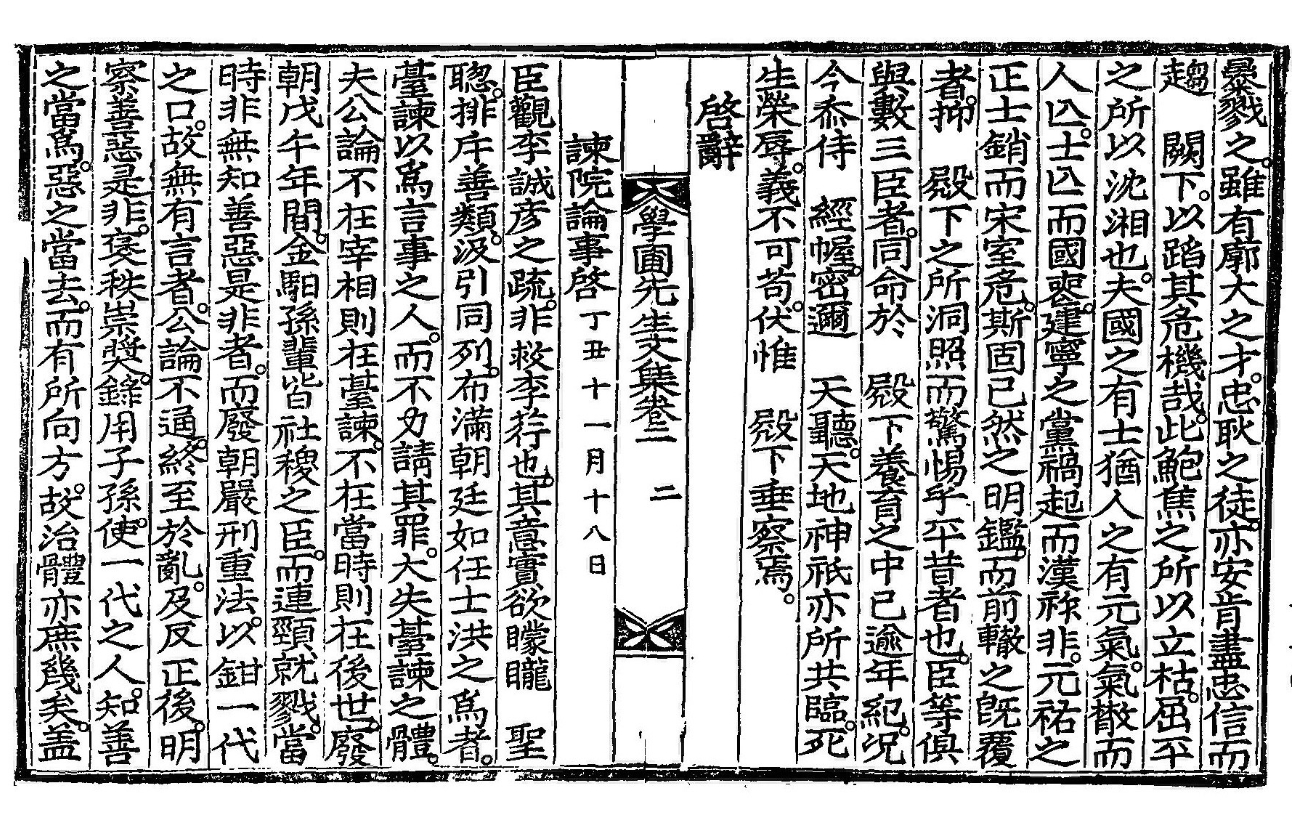 暴戮之。雖有廓大之才。忠耿之徒。亦安肯盡忠信而
趨　闕下。以蹈其危機哉。此鮑焦之所以立枯。屈平
之所以沈湘也。夫國之有士猶人之有元氣。氣散而
人亡。士亡而國喪。建寧之黨禍起而漢祚非。元祐之
正士銷而宋室危。斯固已然之明鑑。而前轍之旣覆
者。抑　殿下之所洞照而驚惕乎平昔者也。臣等俱
與數三臣者。同命於　殿下養育之中已逾年紀。况
今忝侍　經幄。密邇　天聽。天地神祇亦所共臨。死
生榮辱。義不可苟。伏惟　殿下垂察焉。
啓辭
學圃先生文集卷二　二
諫院論事啓丁丑十一月十八日
臣觀李誠彦之疏。非救李荇也。其意實欲矇矓　聖
聦。排斥善類。汲引同列。布滿朝廷如任士洪之爲者。
臺諫以爲言事之人。而不力請其罪。大失臺諫之體。
夫公論不在宰相則在臺諫。不在當時則在後世。廢
朝戊午年間。金馹孫輩皆社稷之臣。而連頸就戮。當
時非無知善惡是非者。而廢朝嚴刑重法。以鉗一代
之口。故無有言者。公論不通。終至於亂。及反正後。明
察善惡是非。褒秩崇奬。錄用子孫。使一代之人。知善
之當爲。惡之當去。而有所向方。故治體亦庶幾矣。盖